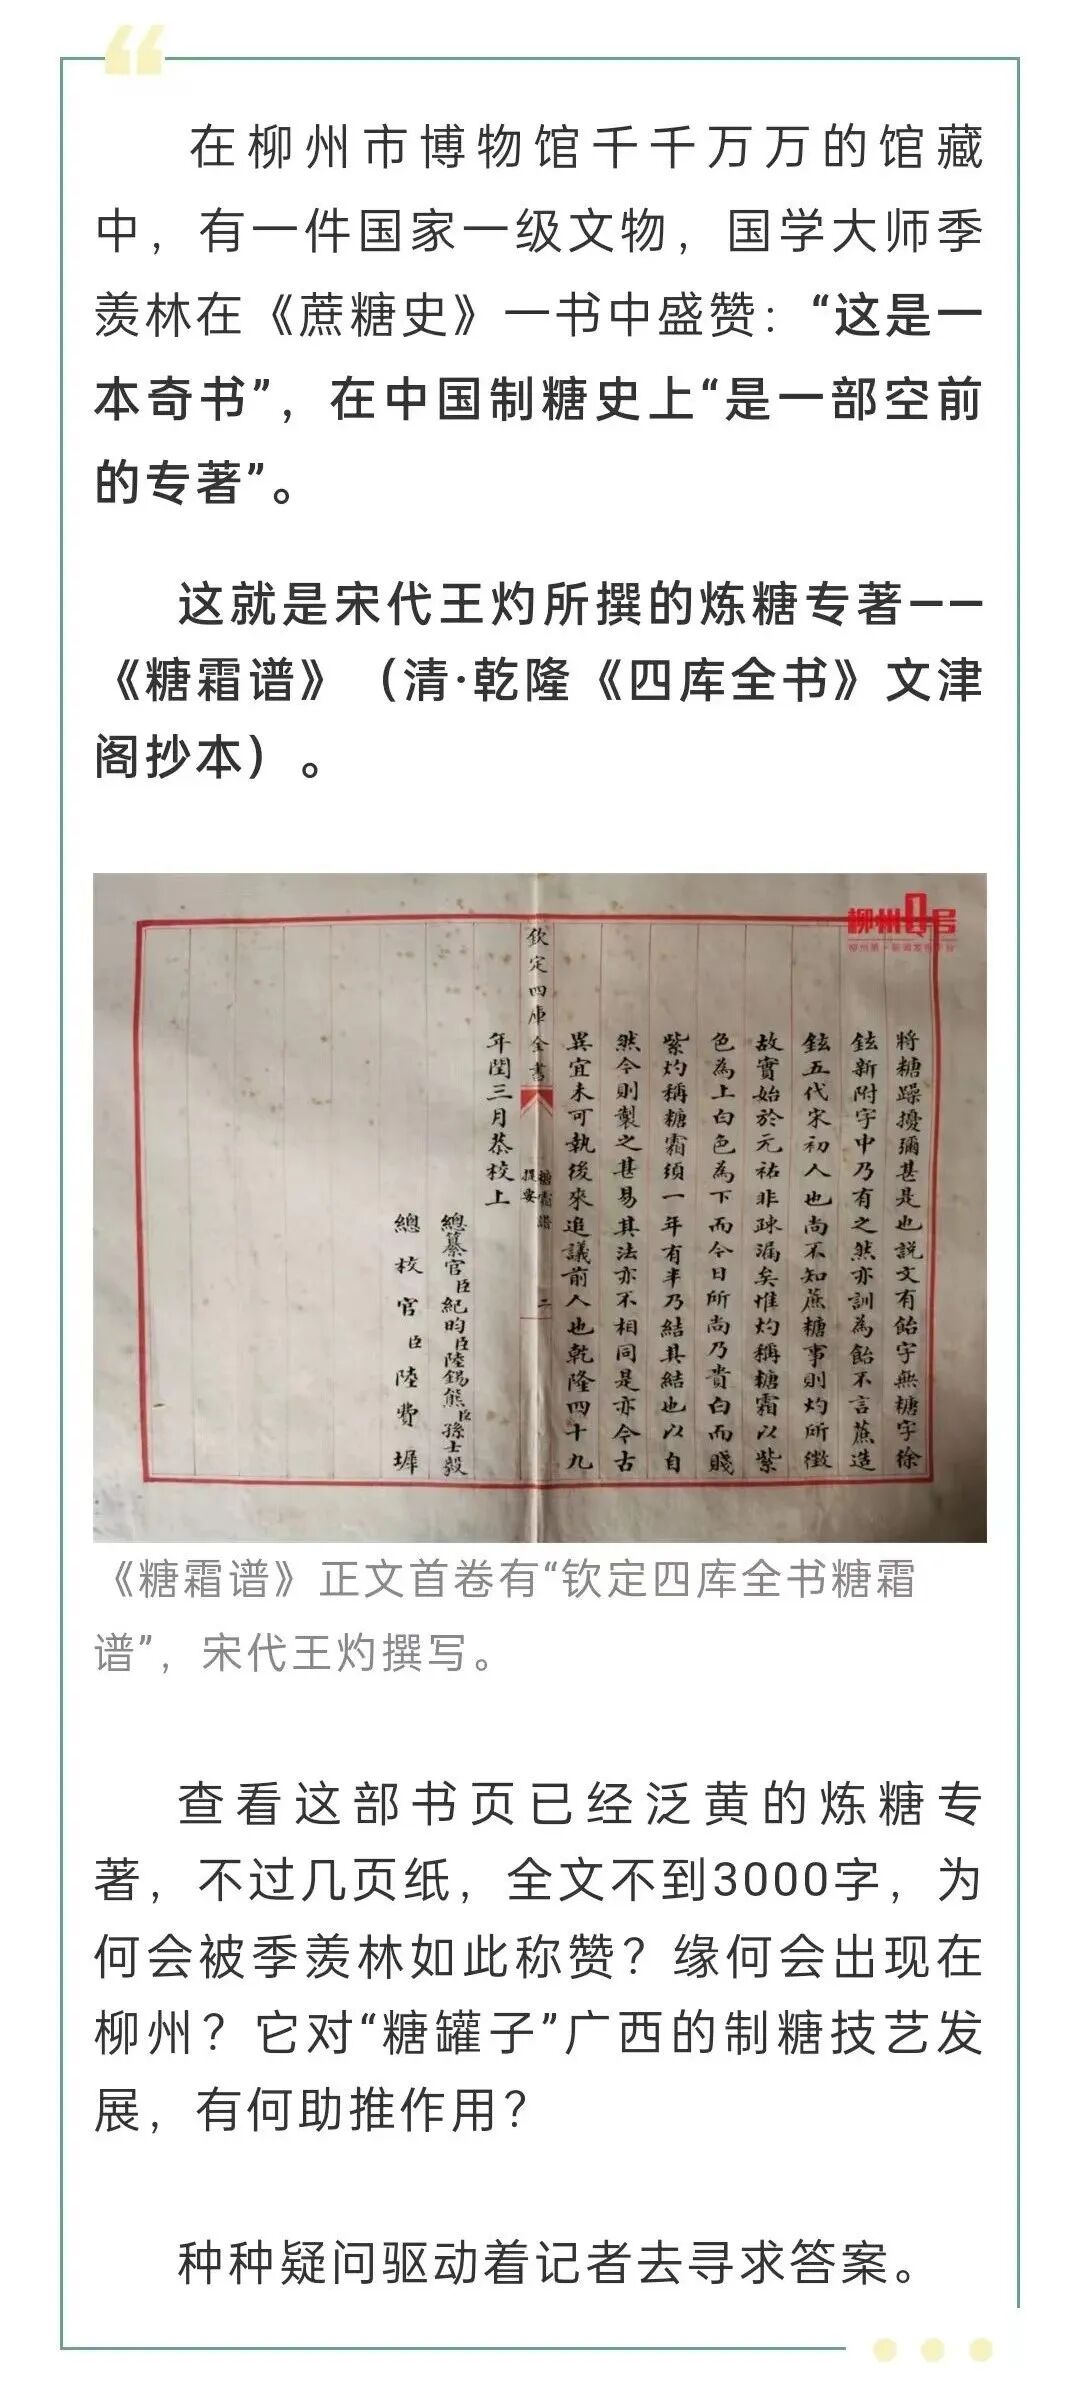 在柳州市博物馆千千万万的馆藏
中，有一件国家一级文物，国学大师季
羡林在《蔗糖史》一书中盛赞：“这是一
本奇书”，在中国制糖史上“是一部空前
的专著”。
这就是宋代王灼所撰的炼糖专著——
《糖霜谱》（清·乾隆《四库全书》文津
阁抄本）。
柳州1号
將糖躁擾彌甚是也説文有飴字無糖字徐
鉉新附字中乃有之然亦訓為飴不言蔗造
鉉五代宋初人也尚不知蔗糖事則灼所徵
故實始於元祐非疎漏矣惟灼稱糖霜以紫
色為上白色為下而今日所尚乃貴白而賤
紫灼稱糖霜須一年有半乃結其結也以自
然今則製之甚易其法亦不相同是亦今古
異宜未可執後來追議前人也乾隆四十九
欽定四庫全書
糖霜譜
提要
二
年閏三月恭校上
總纂官臣紀昀臣陸錫熊臣孫士毅
總校官臣陸費墀
《糖霜谱》正文首卷有“钦定四库全书糖霜
谱”，宋代王灼撰写。
查看这部书页已经泛黄的炼糖专
著，不过几页纸，全文不到3000字，为
何会被季羡林如此称赞？缘何会出现在
柳州？它对“糖罐子”广西的制糖技艺发
展，有何助推作用？
种种疑问驱动着记者去寻求答案。